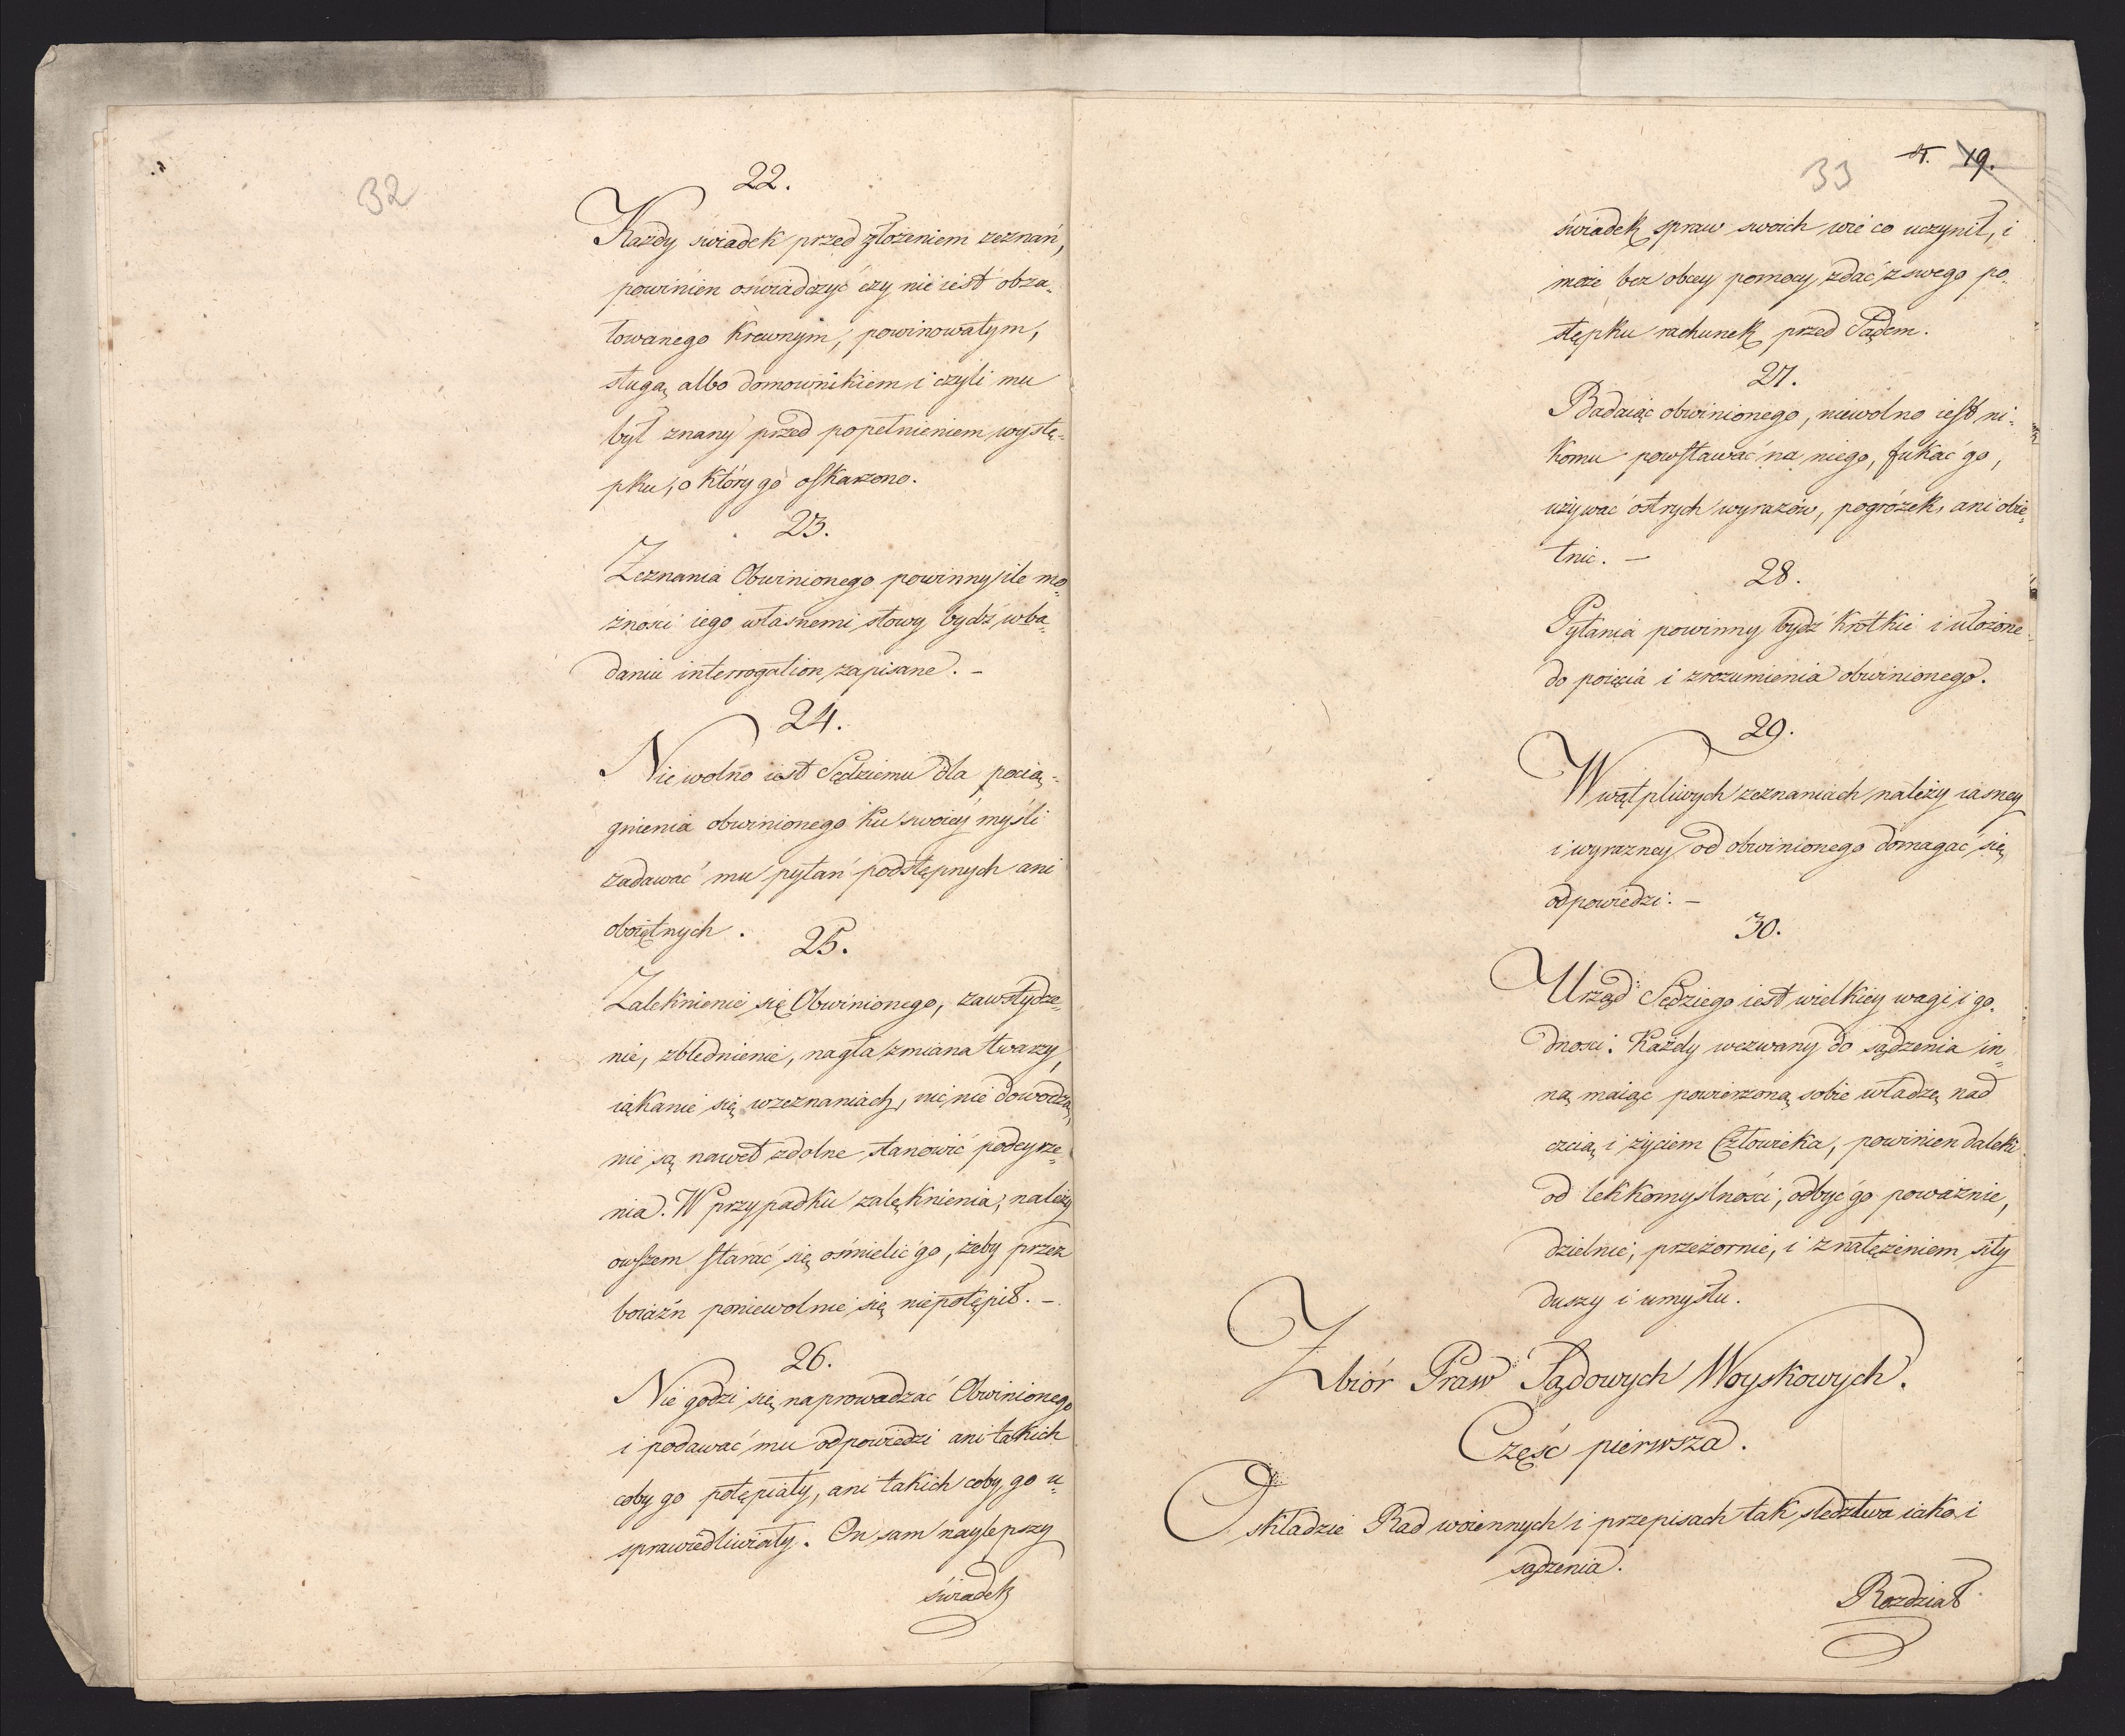 32
22.
Każdy świadek przed złożeniem zeznań,
powinien oświadczyć czy nie iest obża-
łowanego krewnym, powinowatym,
sługą albo domownikiem i czyli mu
był znany przed popełnieniem wystę-
pku, o który go oskarżono.
23.
Zeznania Obwinionego powinny ile mo-
żności iego własnemi słowy bydź w ba-
daniu interrogation zapisane. -
24.
Nie wolno iest Sędziemu dla pocią-
gnienia obwinionego ku swoiey myśli
zadawać mu pytań podstępnych ani
oboiętnych.
25.
Zalęknienie się Obwinionego, zawstydze-
nie, zblednienie, nagła zmiana twarzy,
iąkanie się w zeznaniach, nic nie dowodzą,
nie są nawet zdolne stanowić podeyrze-
nia. W przypadku zalęknienia, należy
owszem starać się ośmielić go, żeby przez
boiaźń poniewolnie się nie potępił. -
26.
Nie godzi się naprowadzać Obwinionego
i podawać mu odpowiedzi ani takich
coby go potępiały, ani takich coby go u-
sprawiedliwiały. On sam naylepszy
świadek
33
19.
świadek spraw swoich wie co uczynił, i
może bez obcey pomocy zdać z swego po-
stępku rachunek przed Sądem.
27.
Badaiąc obwinionego, niewolno iest ni-
komu powstawać na niego, fukać go,
używać ostrych wyrazów, pogróżek, ani obie-
tnic. -
28.
Pytania powinny bydź krótkie i ułożone
do poięcia i zrozumienia obwinionego.
29.
W wątpliwych zeznaniach należy iasney
i wyrazney od obwinionego domagać się
odpowiedzi. -
30.
Urząd Sędziego iest wielkiey wagi i go-
dności. Każdy wezwany do sądzenia in-
ną maiąc powierzoną sobie władzę nad
czcią i życiem Człowieka, powinien daleki
od lekkomyślności, odbyć go poważnie,
dzielnie, przezornie, i z natężeniem siły
duszy i umysłu.
Zbiór Praw Sądowych Woyskowych.
Część pierwsza.
O składzie Rad woiennych i przepisach tak śledztwa iako i
sądzenia.
Rozdział